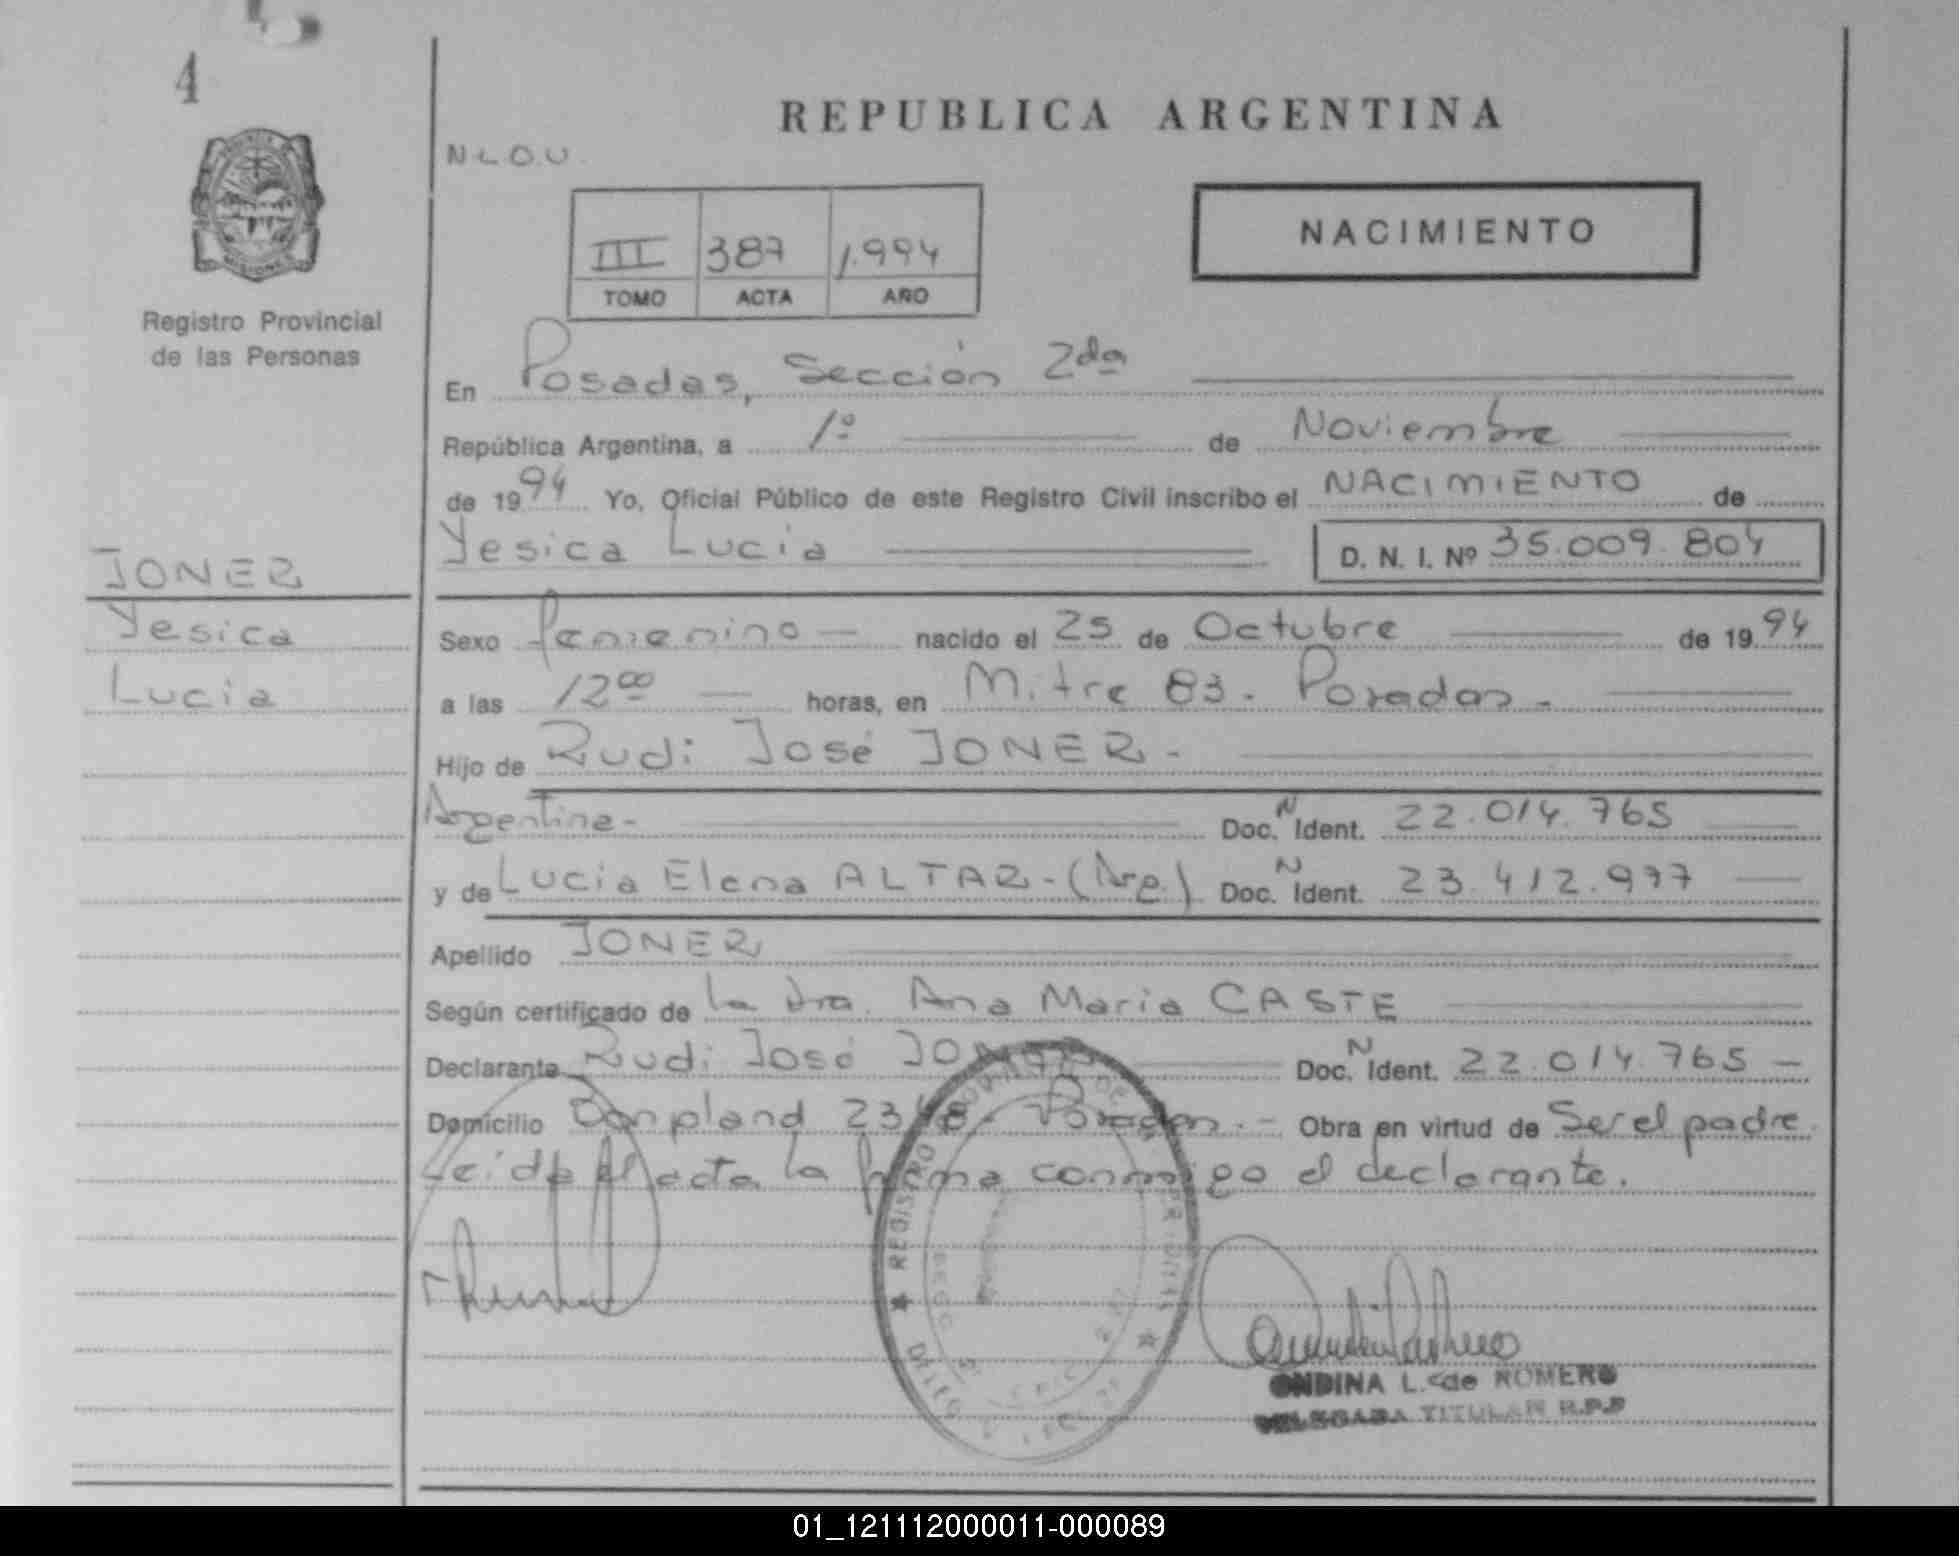 4
REPUBLICA ARGENTINA
N.L.O.U.
NACIMIENTO
III 387 1.994
TOMO ACTA AÑO
MISIONES
Registro Provincial
de las Personas
En Posadas, Sección 2da
República Argentina, a 1º de Noviembre
de 1994 Yo, Oficial Público de este Registro Civil inscribo el NACIMIENTO de
Yesica Lucia D. N. I. Nº 35.009.804
JONER
Yesica
Lucia
Sexo femenino nacido el 25 de Octubre de 1994
a las 12 00 horas, en Mitre 83. Posadas.
Hijo de Rudi José JONER.
Argentina- Doc. N Ident. 22.014.765
y de Lucia Elena ALTAR-(Arg.) Doc. N Ident. 23.412.977
Apellido JONER
Según certificado de la dra. Ana Maria CASTE
Declarante Rudi José JONER Doc. N Ident. 22.014.765
Domicilio Bonpland Posadas.- Obra en virtud de Ser el padre.
Leida el acta la firma conmigo el declarante.
REGISTRO
ONDINA L. de ROMERO
DELEGADA TITULAR R.P.P
01_121112000011-000089